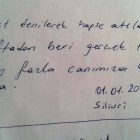 t denilerek hapse atıla
ftadan beri gerçek
fazla canımıza
01.01.20
Silivri